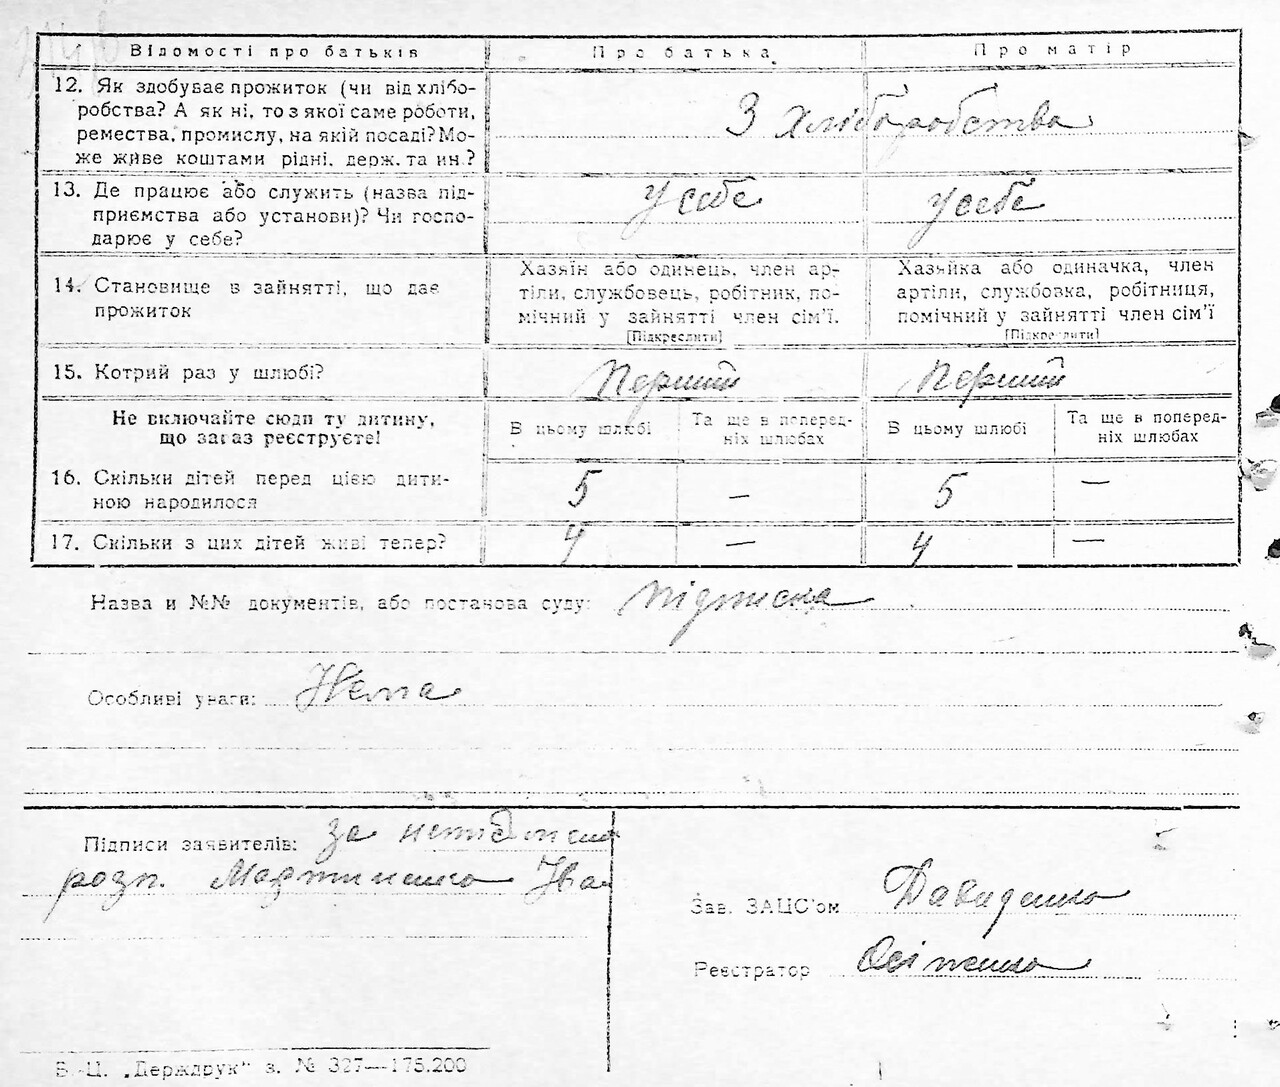 Відомості про батьків Про батька Про матір
12. Як здобуває прожиток (чи від хлібо-
робства? А як ні, то з якої саме роботи,
ремества, промислу, на якій посаді? Мо-
же живе коштами рідні, держ. та ин.?
З хліборобства
13. Де працює або служить (назва під-
приємства або установи)? Чи госпо-
дарює у себе?
у себе у себе
14. Становище в зайнятті, що дає
прожиток
Хазяїн або одинець, член ар-
тіли, службовець, робітник, по-
мічний у зайнятті член сім'ї.
[Підкреслити]
Хазяйка або одиначка, член
артіли, службовка, робітниця,
помічний у зайнятті член сім'ї
[Підкреслити]
15. Котрий раз у шлюбі? Перший Перший
Не включайте сюди ту дитину,
що зараз реєструєте!
В цьому шлюбі Та ще в поперед-
ніх шлюбах В цьому шлюбі Та ще в поперед-
ніх шлюбах
16. Скільки дітей перед цією дити-
ною народилося
5 — 5 —
17. Скільки з цих дітей живі тепер? 4 — 4 —
Назва и №№ документів, або постанова суду: підписка
Особливі уваги: Нема
Підписи заявителів: за
розп. Мартиненко Іва
Зав. ЗАЦС'ом Давиденко
Реєстратор Осіпенко
В.-Ц. „Держдрук" з. № 327—175.200